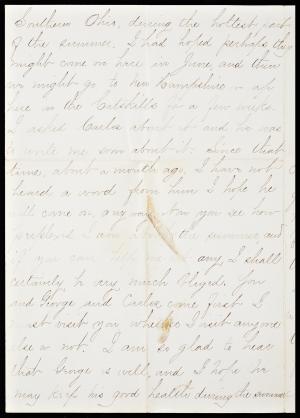 Southern Ohio, during the hottest part
of the summer. I had hoped perhaps they
might come on here in June, and then
we might go to New Hampshire or up
here in the Catskills for a few weeks.
I asked Carlos about it and he was
to write me soon about it. Since that
time, about a month ago, I have not
heard a word from him. I hope he
will come on, any way. Now you see how
perplexed I am about the summer and
if you can help me out any, I shall
certainly be very much obliged. You
and George and Carlos come first. I
must visit you whether I visit anyone
else or not. I am so glad to hear
that George is well, and I hope he
may keep his good health during the summer